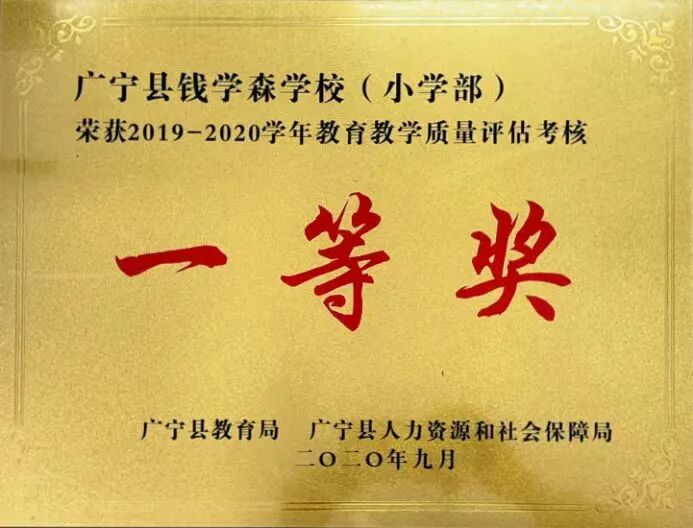 广宁县钱学森学校（小学部）
荣获2019-2020学年教育教学质量评估考核
一等奖
广宁县教育局 广宁县人力资源和社会保障局
二〇二〇年九月